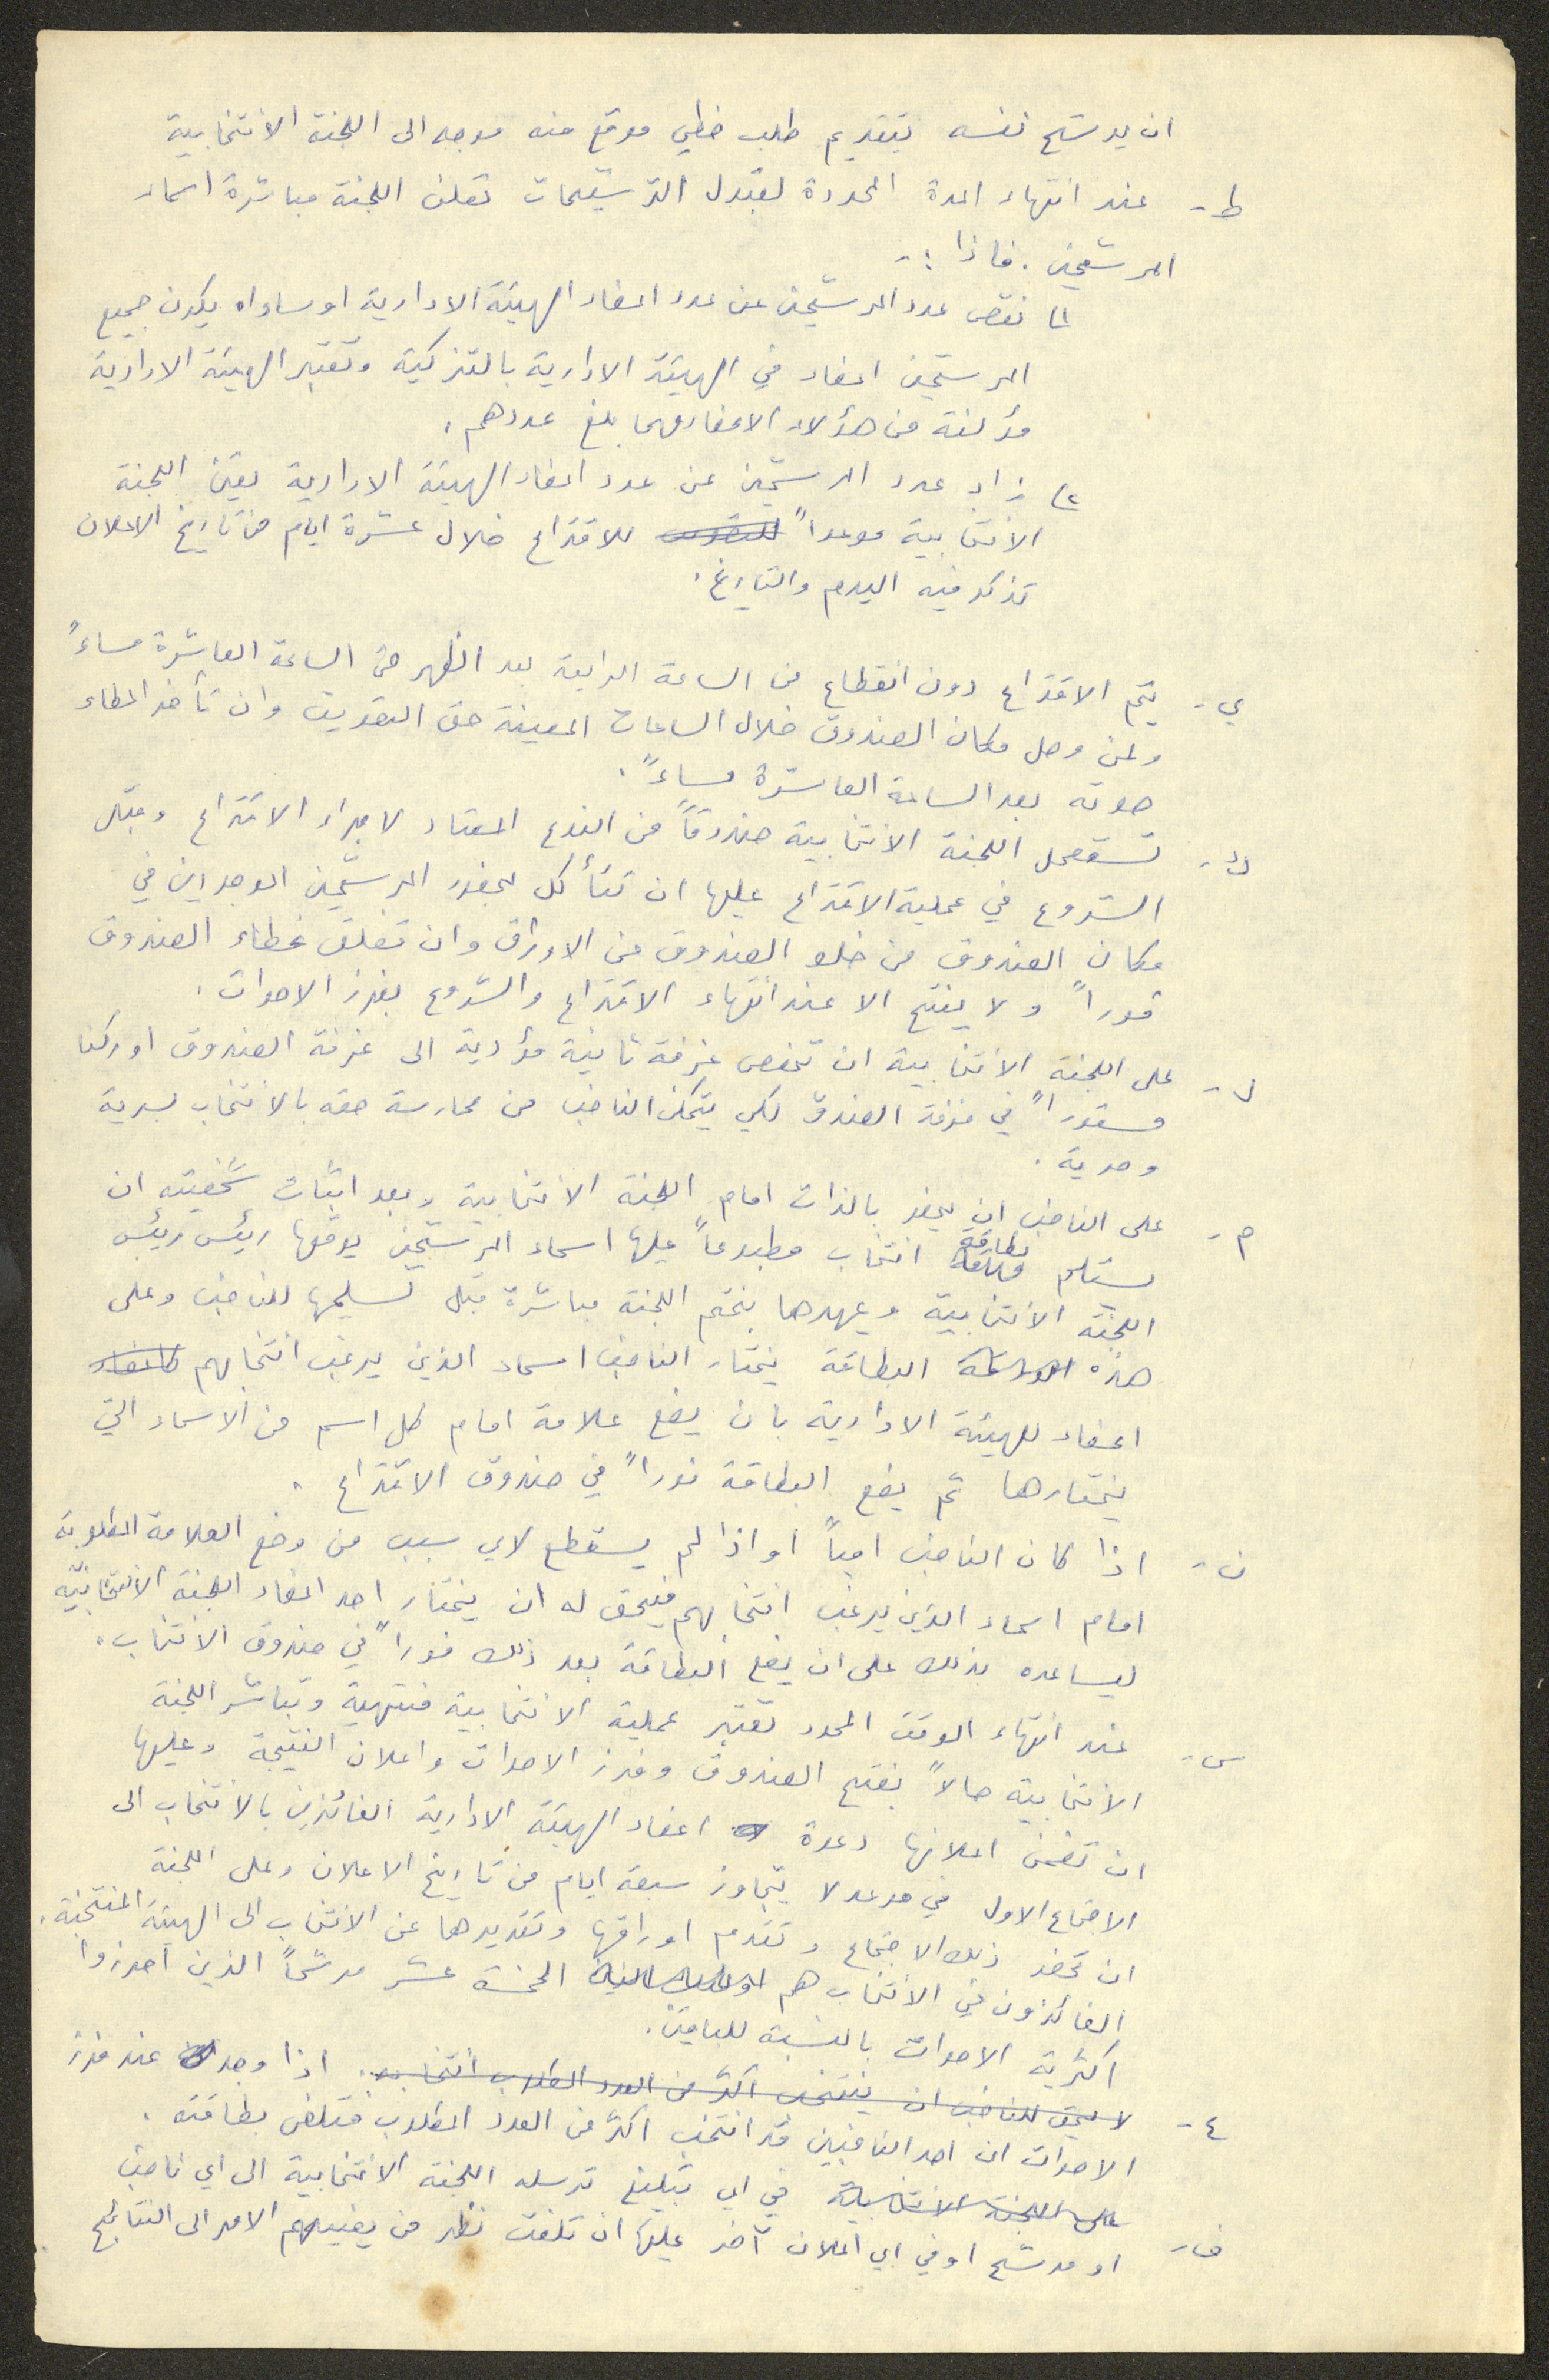 ان يرشح نفسه بتقديم طلب خطي موقع منه موجه الى اللجنة الانتخابية
ط- عند انتهاء المدة المحددة لقبول الترشيحات تعلن اللجنة مباشرة اسماء
المرشحين . فاذا :-
١) نقص عدد المرشحين عن عدد اعضاء الهيئة الادارية او ساواه يكون جميع
المرشحين اعضاء في الهيئة الادارية بالتزكية وتعتبر الهيئة الادارية
مؤلفة من هؤلاء الاعضاء مهما بلغ عددهم .
٢) زاد عدد المرشحين عن عدد اعضاء الهيئة الادارية يعين اللجنة
الانتخابية موعداً للاقتراع خلال عشرة ايام من تاريخ الاعلان
تذكر فيه اليوم والتاريخ .
ي- يتم الاقتراع دون انقطاع من الساعة الرابعة بعد الظهر حتى الساعة العاشرة مساءً
ولمن وصل مكان الصندوق خلال الساعات المعينة حق التصويت وان تأخر اعطاء
صوته بعد الساعة العاشرة مساءً .
ك- تستعمل اللجنة الانتخابية صندوقاً من النوع المعتاد لاجراء الاقتراع وقبل
الشروع في عملية الاقتراع عليها ان تتأكد بحضور المرشحين الموجودين في
مكان الصندوق من خلو الصندوق من الاوراق وان تغلق غطاء الصندوق
فوراً ولا يفتح الا عند انتهاء الاقتراع والشروع بفرز الاصوات .
ل- على اللجنة الانتخابية ان تخصص غرفة ثانية مؤدية الى غرفة الصندوق او ركنا
مستوراً في غرفة الصندق لكي يتمكن الناخب من ممارسة حقه بالانتخاب بسرية
وحرية .
م- على الناخب ان يحضر بالذات امام اللجنة الانتخابية وبعد اثبات شخصيته ان
يستلم بطاقة انتخاب مطبوعاً عليها اسماء المرشحين يوقعها رئيس رئيس
اللجنة الانتخابية ويمهرها بختم اللجنة مباشرة قبل تسليمها للناخب وعلى
هذه البطاقة يختار الناخب اسماء الذين يرغب انتخابهم
اعضاء للهيئة الادارية بان يضع علامة امام كل اسم من الاسماء التي
يختارها ثم يضع البطاقة فوراً في صندوق الاقتراع .
ن- اذا كان الناخب امياً او اذا لم يستطع لاي سبب من وضع العلامة المطلوبة
امام اسماء الذين يرغب انتخابهم فيحق له ان يختار احد اعضاء اللجنة الانتخابية
ليساعده بذلك على ان يضع البطاقة بعد ذلك فوراً في صندوق الانتخاب .
س- عند انتهاء الوقت المحدد تعتبر عملية الانتخابية منتهية وتباشر اللجنة
الانتخابية حالاً بفتح الصندوق وفرز الاصوات واعلان النتيجة وعليها
ان تضمن اعلانها دعوة اعضاء الهيئة الادارية الفائزين بالانتخاب الى
الاجتماع الاول في موعد لا يتجاوز سبعة ايام من تاريخ الاعلان وعلى اللجنة
ان تحضر ذلك الاجتماع وتقدم اوراقها وتقريرها عن الانتخاب الى الهيئة المنتخبة .
الفائزون في الانتخاب هم الخمسة عشر مرشحاً الذين احرزوا
اكثرية الاصوات بالنسبة للباقين .
ع- لا يحق للناخب ان ينتخب اكثر من العدد المطلوب انتخابه . اذا وجد عند فرز
الاصوات ان احد الناخبين قد انتخب اكثر من العدد المطلوب فتلغى بطاقته .
ف- على اللجنة الانتخابية في اي تبليغ ترسله اللجنة الانتخابية الى اي ناخب
او مرشح او في اي اعلان آخر عليها ان تلفت نظر من يعنيهم الامر الى النتائج